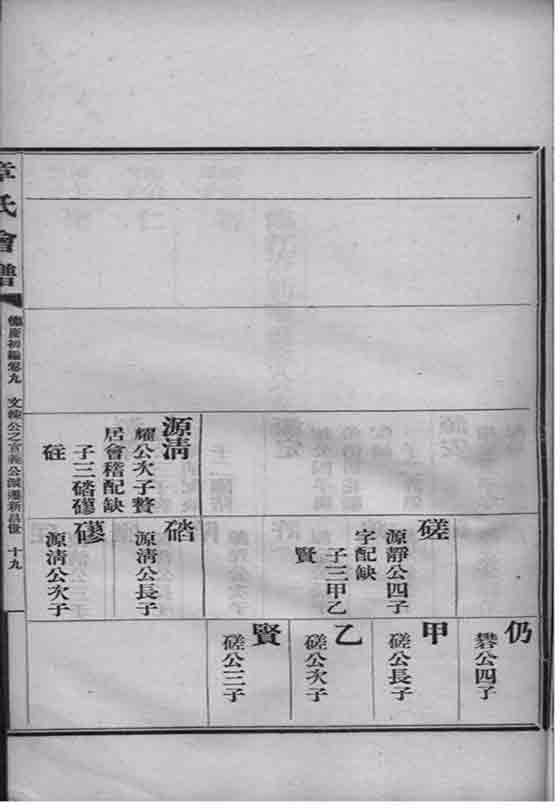 仍
礬公四子
甲
磋公長子
乙
磋公次子
賢
磋公三子
磋
源靜公四子
字配缺
子三甲乙
賢
碏
源淸公長子
礤
源淸公次子
源淸
耀公次子贅
居會稽配缺
子三碏礤
砫
章氏會譜
德慶初編卷九
文
公之宣義公派遷新昌世
十九